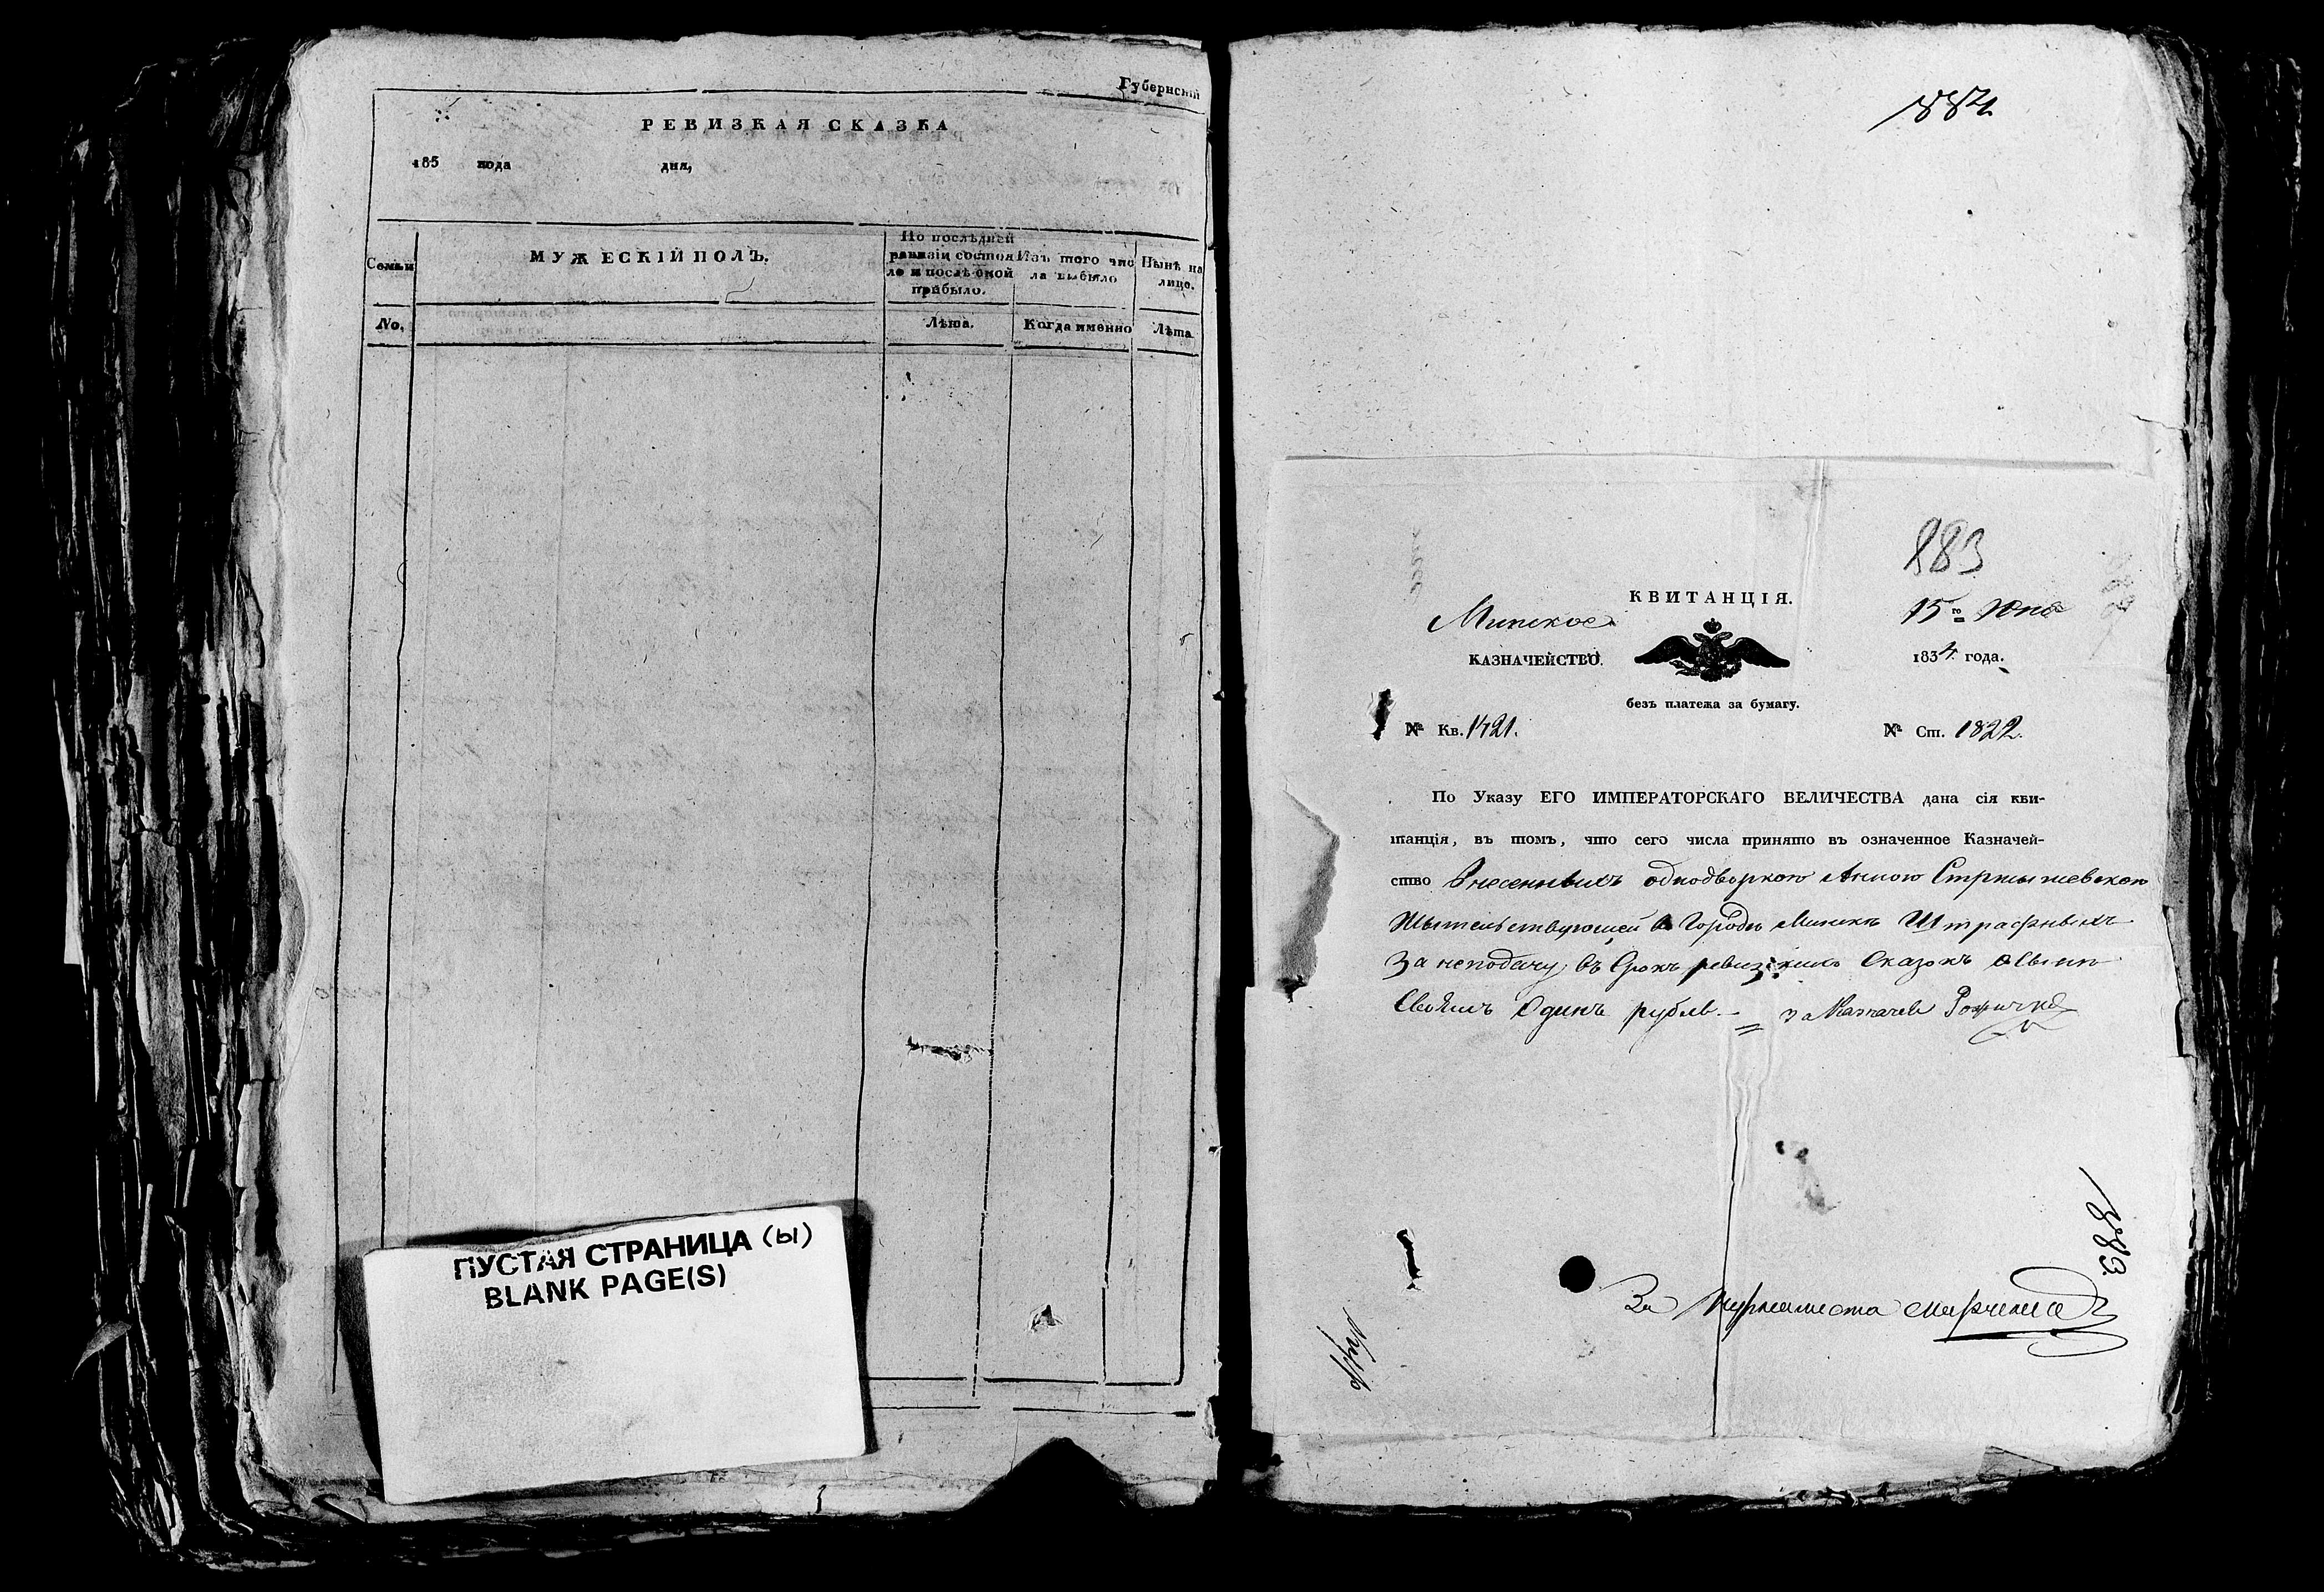 Губернскій
РЕВИЗКАЯ СКАЗКА
185 года дня,
Семьи
МУЖЕСКІЙ ПОЛЪ.
По последней ревизіи состояло и послѣ оной прибыло.
Изъ того числа выбыло
Нынѣ на лицо.
No.
Лѣта.
Когда именно
Лѣта.
ПУСТАЯ СТРАНИЦА (Ы)
BLANK PAGE(S)
884
883
КВИТАНЦІЯ.
15го Юня
Минское
КАЗНАЧЕЙСТВО.
1834 года.
безъ платежа за бумагу.
№ Кв. 1421.
№ Ст. 1822.
По Указу ЕГО ИМПЕРАТОРСКАГО ВЕЛИЧЕСТВА дана сія кви-
танція, въ томъ, что сего числа принято въ означенное Казначей-
ство Внесенныхъ однодворкою Анною
Жытельствующей в Городѣ Минскѣ Штрафныхъ
За неподачу въ Срокъ ревизкихъ Сказокъ о Сынѣ
Своемъ Одинъ рубль. = За Казначея
883
За Журналиста